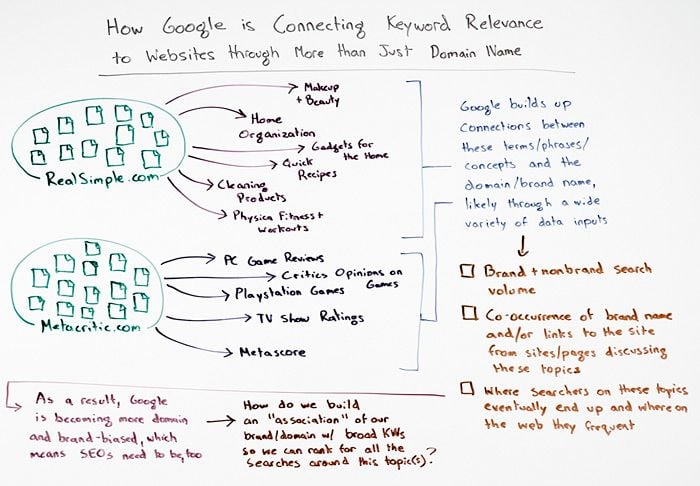 How Google is Connecting Keyword Relevance
to Websites through More than Just Domain Name
RealSimple.com
Makeup
+ Beauty
Home
Organization
Gadgets for
the Home
Quick
Recipes
Cleaning
Products
Physica Fitness +
Workouts
Metacritic.com
PC Game Reviews
Critics Opinions on
Games
Playstation Games
TV Show Ratings
Metascore
Google builds up
Connections between
these terms/phrases/
concepts and the
domain/brand name,
likely through a wide
variety of data inputs
Brand + nonbrand search
volume
Co-occurrence of brand name
and/or links to the site
from sites/pages discussing
these topics
Where searchers on these topics
eventually end up and where on
the web they frequent
As a result, Google
is becoming more domain
and brand-biased, which
means SEOs need to be, too
How do we build
an "association" of our
brand/domain w/ broad KWs
so we can rank for all the
searches around this topic(s)?